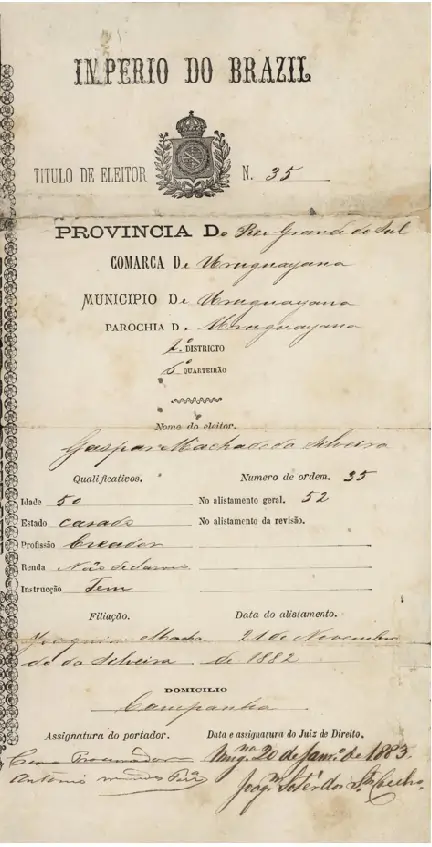 IMPERIO DO BRAZIL
TITULO DE ELEITOR N. 35
PROVINCIA Do Rio Grande do Sul
COMARCA De Uruguayana
MUNICIPIO De Uruguayana
PAROCHIA D. Uruguayana
DISTRICTO
QUARTEIRÃO
Nome do eleitor.
Gaspar Machado da Silveira
Qualificativos. Numero de ordem. 35
Idade 50 No alistamento geral. 52
Estado casado No alistamento da revisão.
Profissão Creador
Renda Não
Instrucção Tem
Filiação. Data do alistamento.
Joaquim Macha 21 de Novembro
do da Silveira de 1882
DOMICILIO
Campanha
Assignatura do portador. Data e assignatura do Juiz de Direito.
Como Procurador Urugna 20 de Janro de 1883.
Antonio